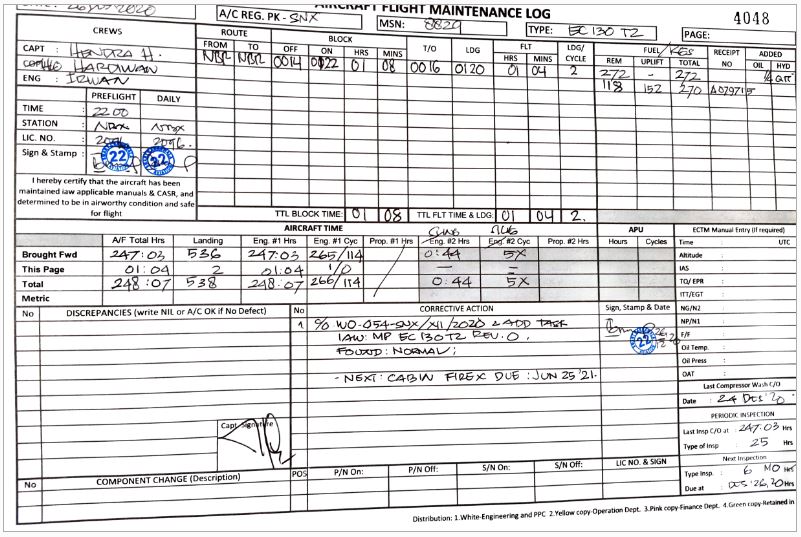 AIRCRAFT FLIGHT MAINTENANCE LOG
4048
A/C REG. PK - SNX
MSN: 8829
TYPE: EC 130 T2
PAGE:
CREWS
CAPT : HENDRA H.
HARDWAN
ENG : IRWAN
ROUTE
FROM TO
BLOCK
OFF ON HRS MINS
T/O LDG
FLT
HRS MINS
LDG/ CYCLE
FUEL/KGS
REM UPLIFT TOTAL
RECEIPT NO
ADDED
OIL HYD
NBR NBR 0014 0122 01 08 0016 0120 01 04 2 272 - 272
118 152 270
PREFLIGHT DAILY
TIME : 22 00
STATION :
LIC. NO. : 2096 2096.
Sign & Stamp : 22 22
I hereby certify that the aircraft has been
maintained iaw applicable manuals & CASR, and
determined to be in airworthy condition and safe
for flight
TTL BLOCK TIME: 01 08 TTL FLT TIME & LDG: 01 04 2.
AIRCRAFT TIME
APU
ECTM Manual Entry (if required)
A/F Total Hrs Landing Eng. #1 Hrs Eng. #1 Cyc Prop. #1 Hrs Eng. #2 Hrs Eng #2 Cyc Prop. #2 Hrs Hours Cycles
Brought Fwd 247:03 536 247:03 265/114 0:44 5X
This Page 01:04 2 01:04 1/0 — —
Total 248:07 538 248:07 266/114 0:44 5X
Metric
Time : UTC
Altitude :
IAS :
TQ/ EPR :
ITT/EGT :
NG/N2 :
NP/N1 :
F/F :
Oil Temp. :
Oil Press :
OAT :
No DISCREPANCIES (write NIL or A/C OK if No Defect)
No CORRECTIVE ACTION
Sign, Stamp & Date
1 C/O WO-054-SNX/XII/2020 & ADD TASK
IAW: MP EC130T2 REV. 0.
FOUND: NORMAL;
- NEXT: CABIN FIREX DUE : JUN 25'21.
22
Capt. Signature
Last Compressor Wash C/O
Date : 24 DES '20
PERIODIC INSPECTION
Last Insp C/O at : 247:03 Hrs
Type of Insp : 25 Hrs
Next Inspection
Type Insp. : 6 MO Hrs
Due at : DES '26, 20 Hrs
No COMPONENT CHANGE (Description) POS P/N On: P/N Off: S/N On: S/N Off: LIC NO. & SIGN
Distribution: 1.White-Engineering and PPC 2.Yellow copy-Operation Dept. 3.Pink copy-Finance Dept. 4.Green copy-Retained in